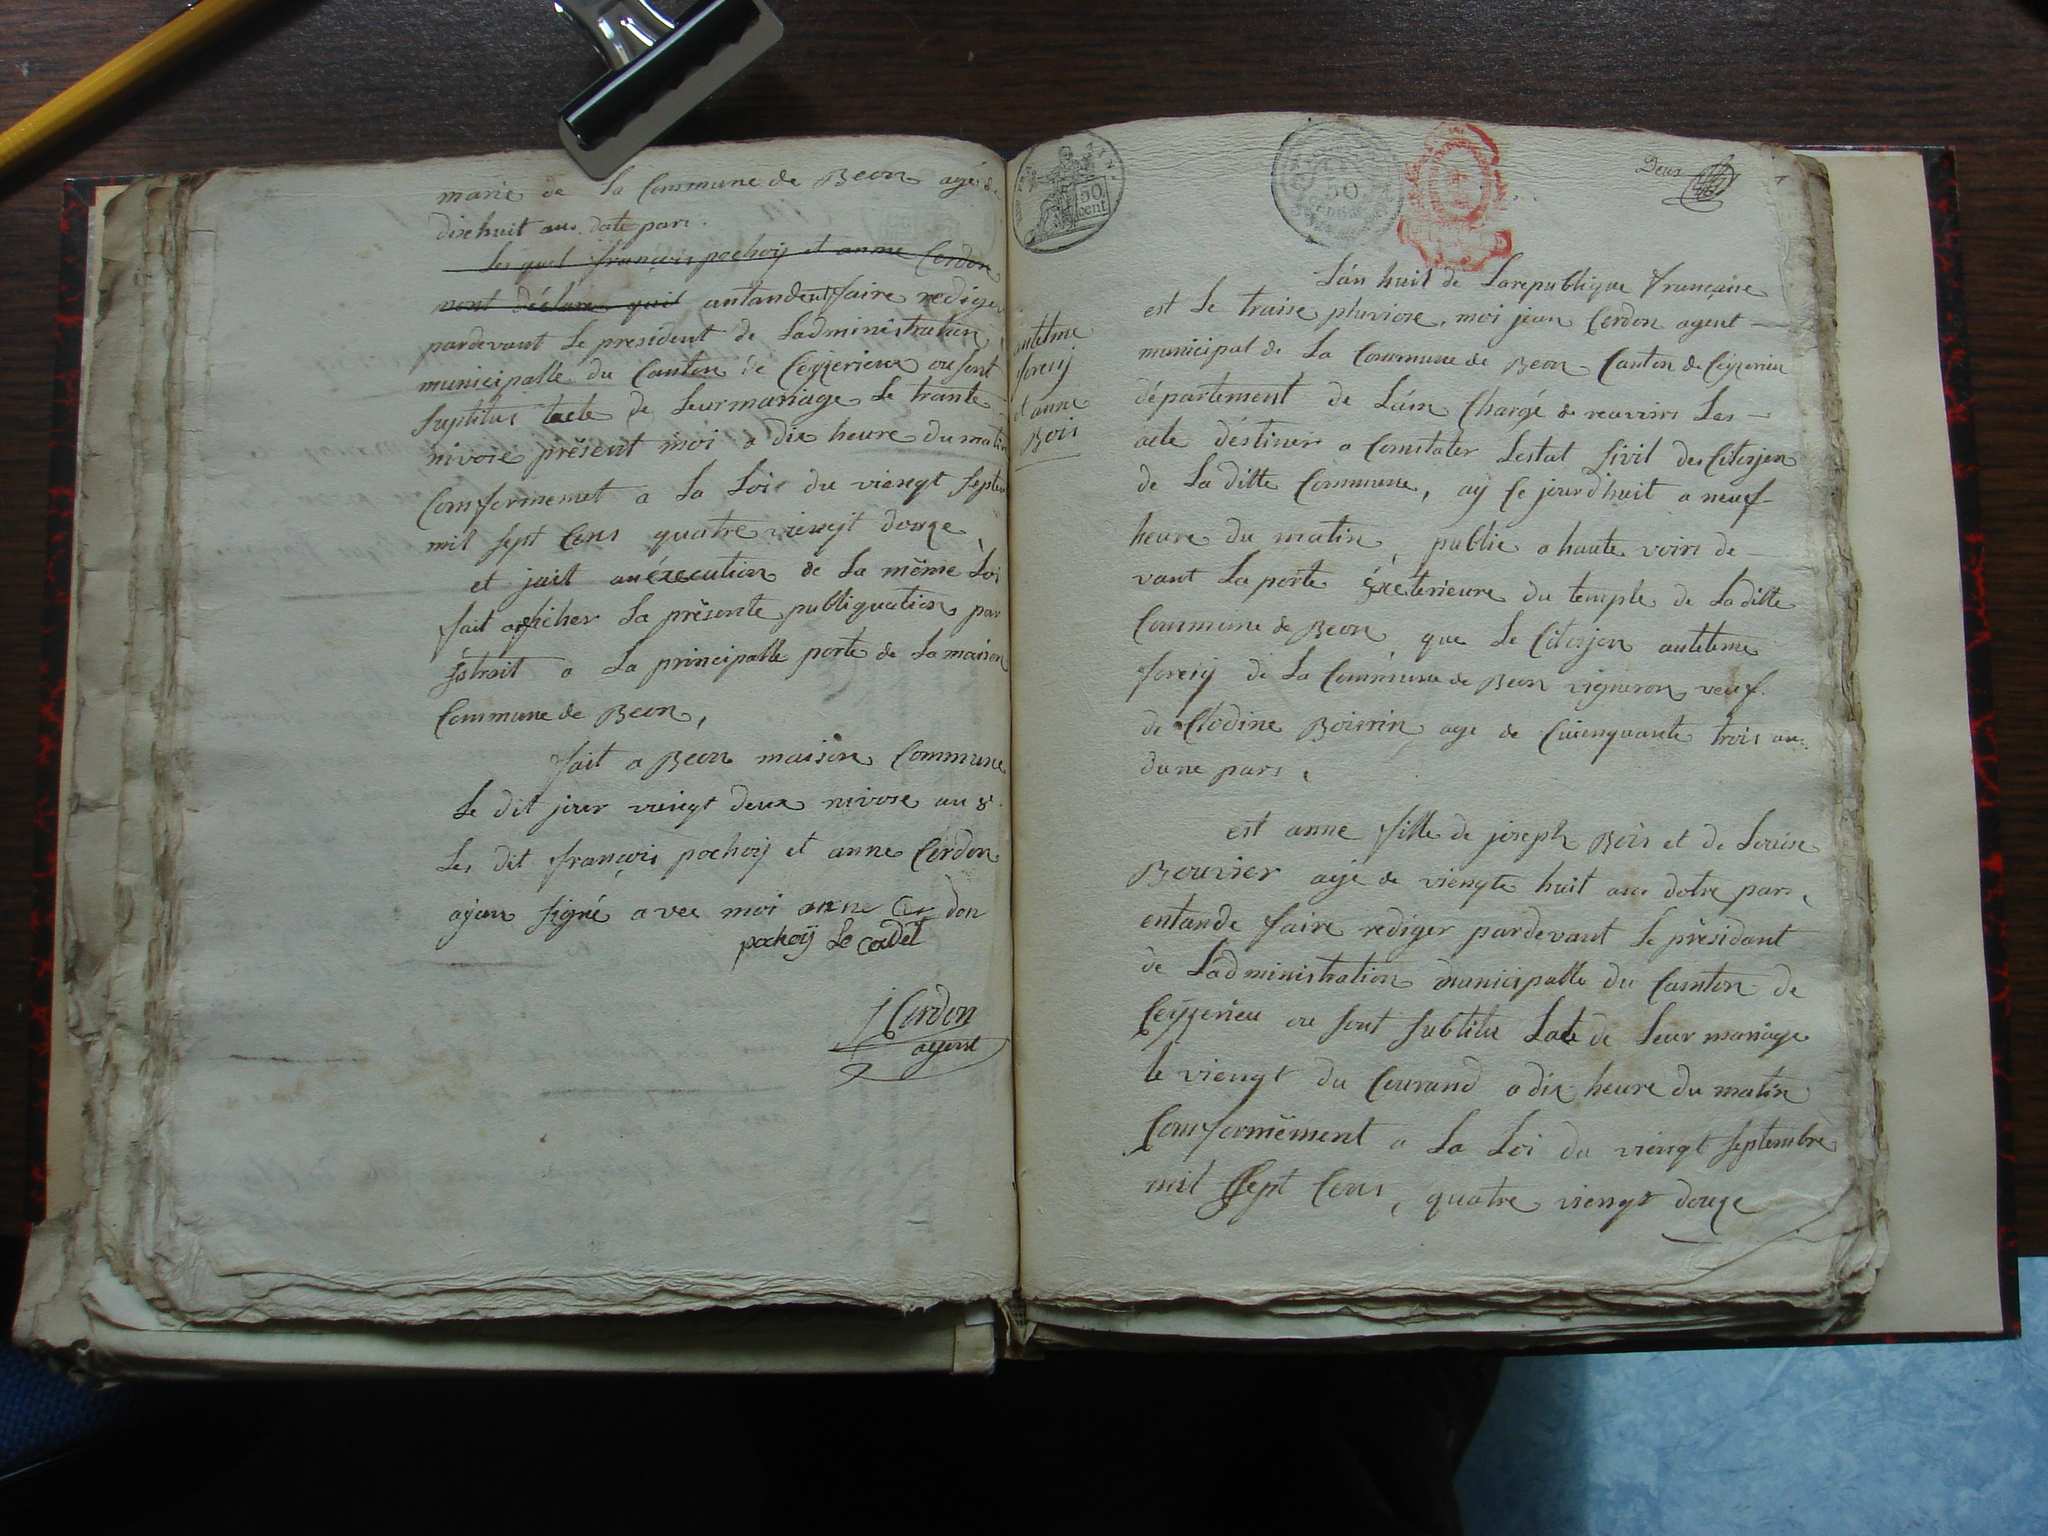 marie de la Commune de Beon agé de
dixhuit ans dotte pars.
les quel françois pochoÿ et anne Cerdon
mont déclare quil antandent faire rediger
pardevant le president de ladministration
municipalle du Canton de Ceÿzerieux ou sont
lacte de leur mariage le trante
nivose présent moi a dix heure du matin
Comformemet a la Loi du viengt septem
mil sept Cens quatre viengt douze
et jait an éxecution de la même Loi
fait afficher la présente publiquation par
éstrait a la principalle porte de la maison
Commune de Beon,
fait a Beon maison Commune
le dit jour viengt deux nivose an 8.
les dit françois pochoÿ et anne Cerdon
ayan signé avec moi anne Cer don
pochoÿ le cadet
j Cerdon
agent
50
cent
50
Deux
antelme
foreiÿ
et anne
Bois
Lan huit de Larepublique française
est le traise pluviose, moi jean Cerdon agent
municipal de la Commune de Beon Canton de Ceÿzerieu
département de Lain Chargé de reсevoirs les
acte déstiner a Comstater Lestat sivil des Citoyen
de la ditte Commune, aÿ Ce jourdhuit a neuf
heure du matin, publie a haute voirs de
vant la porte éxcterieure du temple de la ditte
Commune de Beon, que le Citoyen antelme
foreiÿ de la Commune de Beon vigneron veuf
de Clodine Boisrin age de Cuienquante trois an
dune pars,
est anne fille de joseph Bois et de Louise
Bouvier agé de viengte huit ans dotre pars,
entande faire rediger pardevant le présidant
de Ladministration municipalle du Camton de
Ceÿzerieu ou sont subtitu Lacte de leur mariage
le viengt du Courand a dix heure du matin
Comformément a la Loi du viengt septembre
mil sept Cens, quatre viengt douze